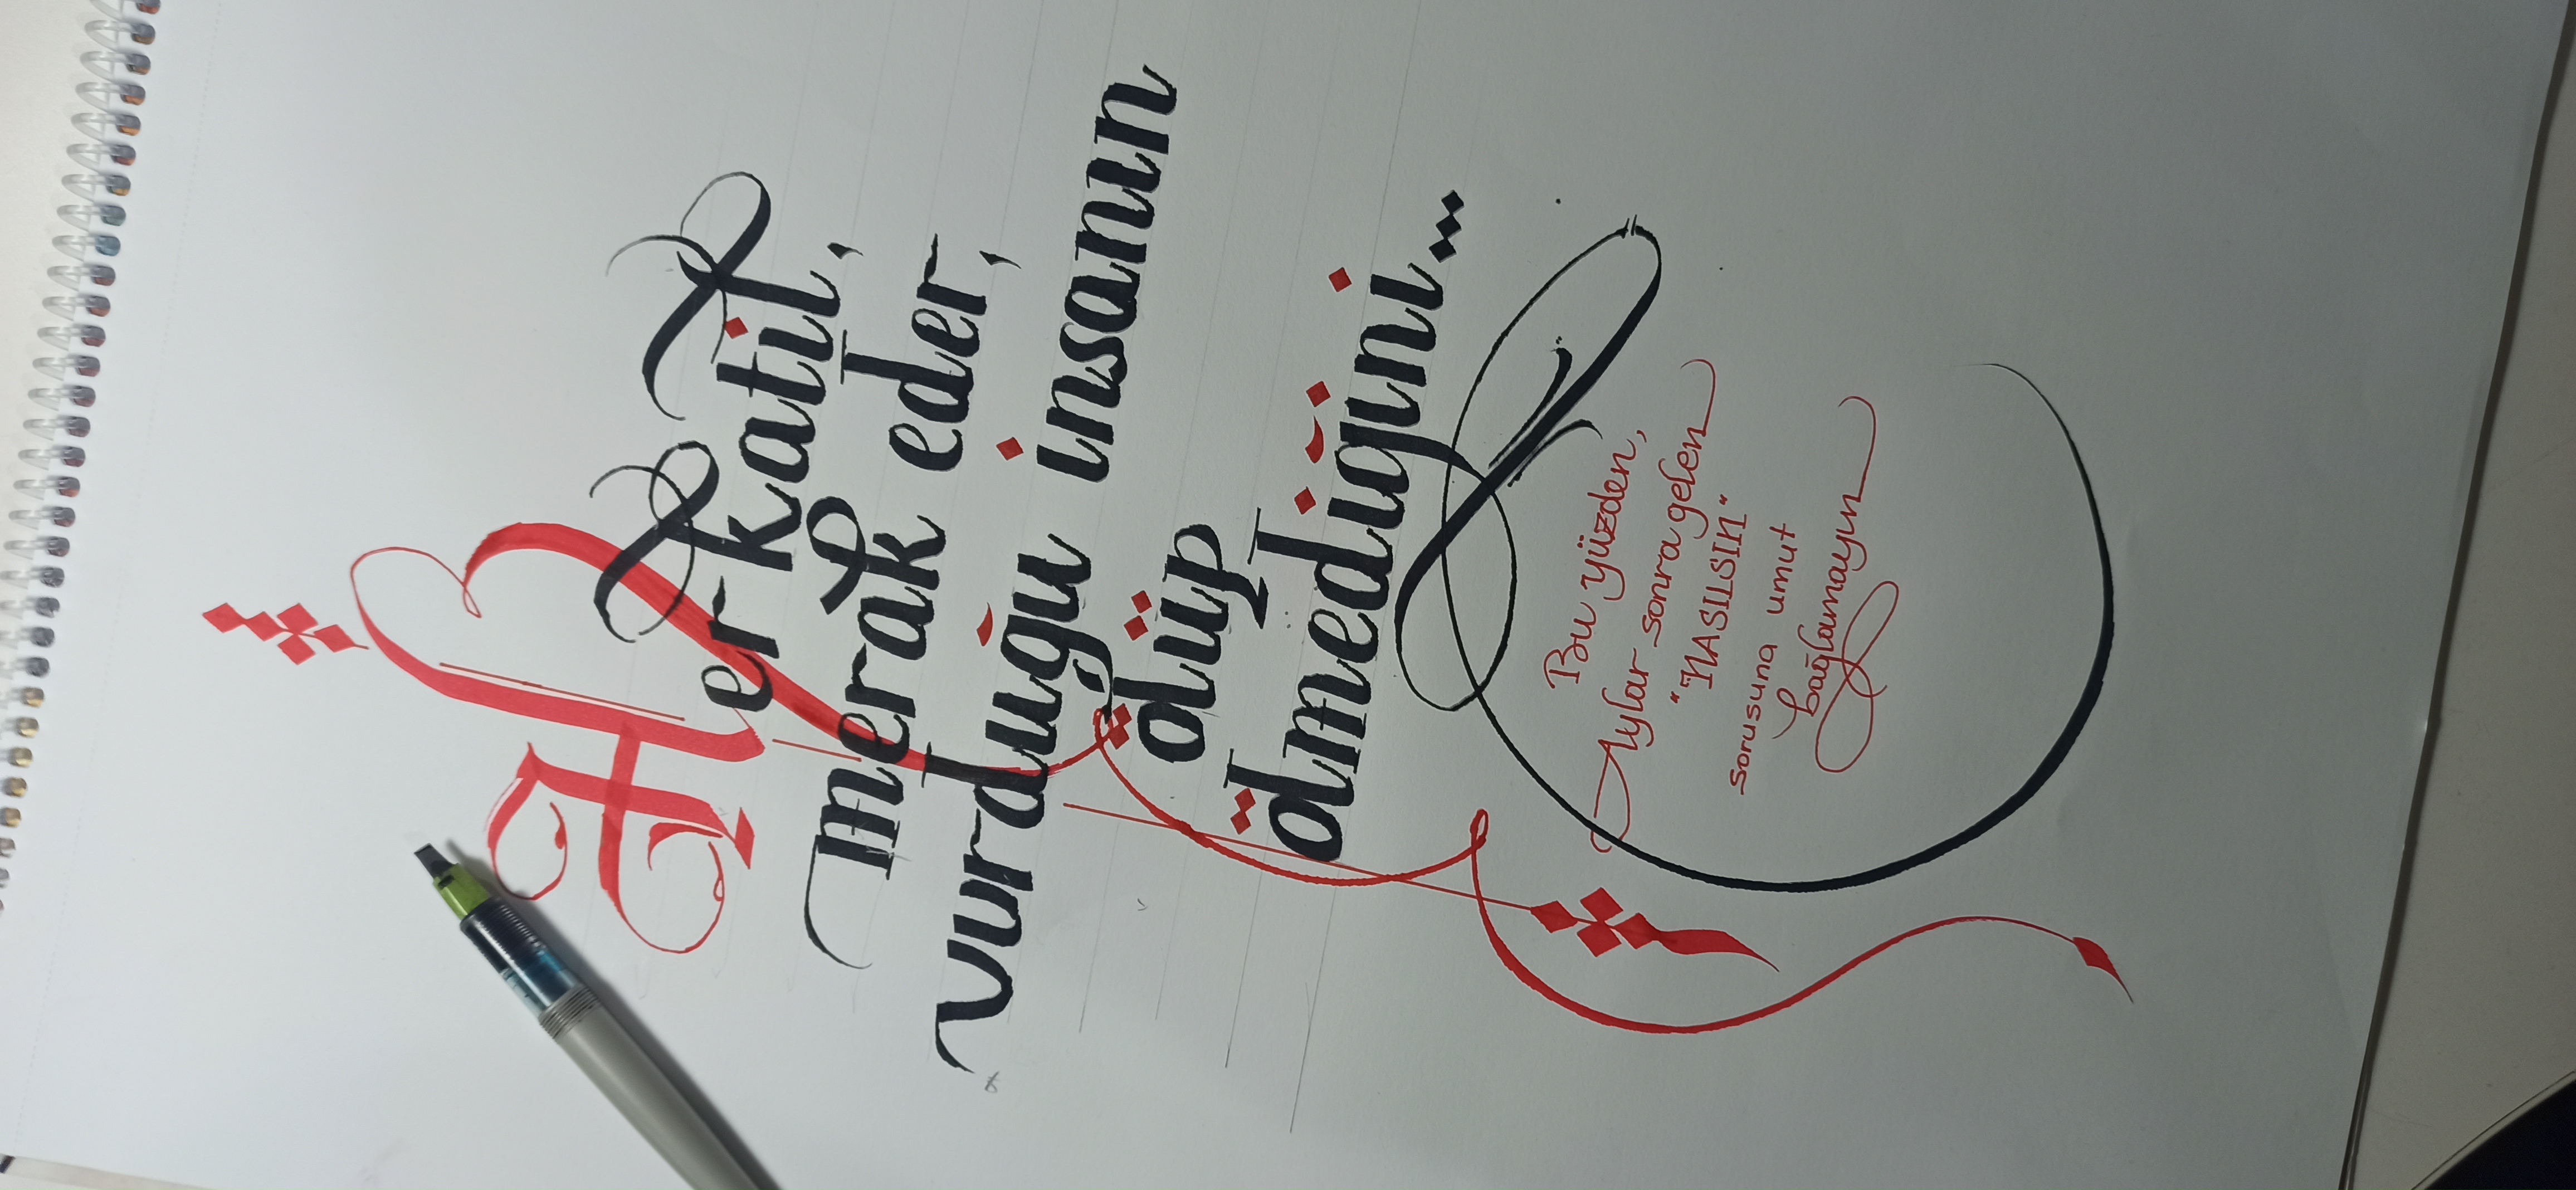 Her katil,
merak eder,
vurduğu insanın
ölüp
ölmediğini...
Bu yüzden,
Aylar sonra gelen
"NASILSIN"
sorusuna umut
bağlamayın